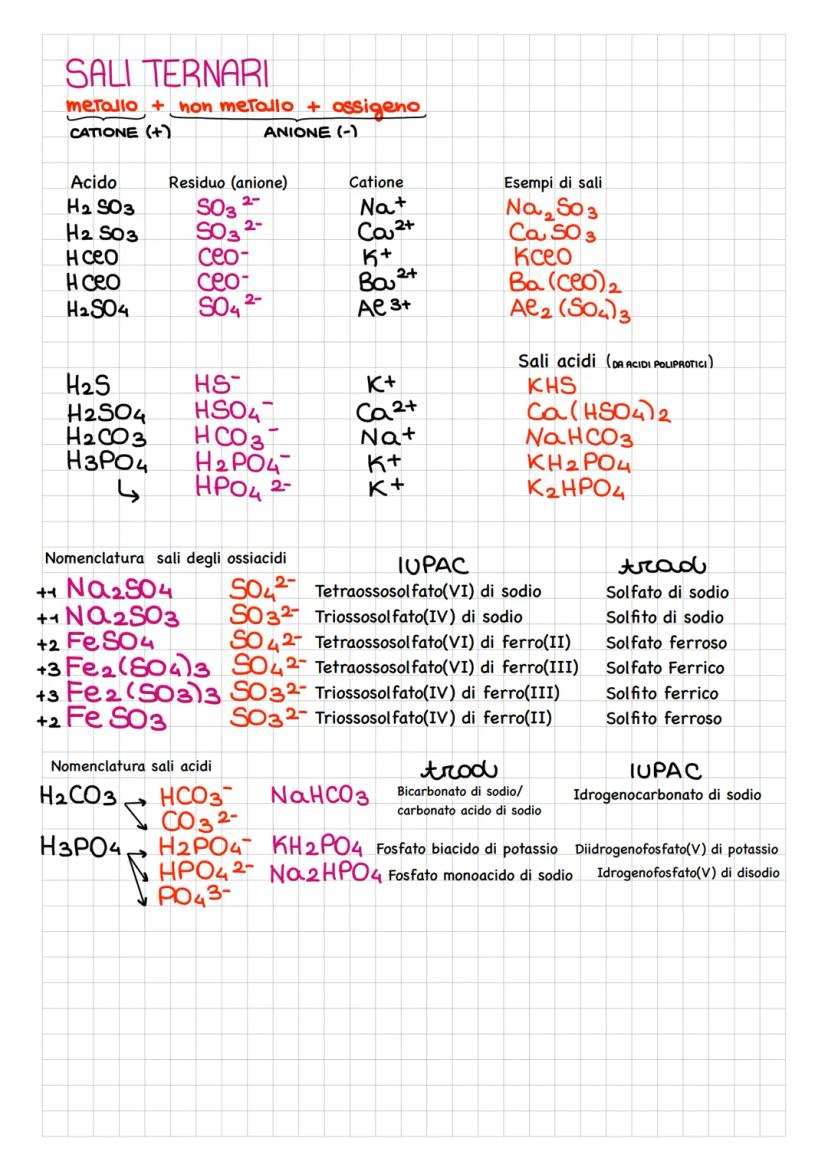 SALI TERNARI
metallo + non metallo + ossigeno
CATIONE (+) ANIONE (-)
Acido Residuo (anione) Catione Esempi di sali
H2SO3 SO3 2- Na+ Na2SO3
H2SO3 SO3 2- Ca2+ CaSO3
HClO ClO- K+ KClO
HClO ClO- Ba2+ Ba(ClO)2
H2SO4 SO4 2- Al3+ Al2(SO4)3
Sali acidi (DA ACIDI POLIPROTICI)
H2S HS- K+ KHS
H2SO4 HSO4- Ca2+ Ca(HSO4)2
H2CO3 HCO3- Na+ NaHCO3
H3PO4 H2PO4- K+ KH2PO4
↳ HPO4 2- K+ K2HPO4
Nomenclatura sali degli ossiacidi IUPAC trad
+1 Na2SO4 SO4 2- Tetraossosolfato(VI) di sodio Solfato di sodio
+1 Na2SO3 SO3 2- Triossosolfato(IV) di sodio Solfito di sodio
+2 FeSO4 SO4 2- Tetraossosolfato(VI) di ferro(II) Solfato ferroso
+3 Fe2(SO4)3 SO4 2- Tetraossosolfato(VI) di ferro(III) Solfato Ferrico
+3 Fe2(SO3)3 SO3 2- Triossosolfato(IV) di ferro(III) Solfito ferrico
+2 FeSO3 SO3 2- Triossosolfato(IV) di ferro(II) Solfito ferroso
Nomenclatura sali acidi trad IUPAC
H2CO3 → HCO3- NaHCO3 Bicarbonato di sodio/ Idrogenocarbonato di sodio
carbonato acido di sodio
CO3 2-
H3PO4 → H2PO4- KH2PO4 Fosfato biacido di potassio Diidrogenofosfato(V) di potassio
HPO4 2- Na2HPO4 Fosfato monoacido di sodio Idrogenofosfato(V) di disodio
PO4 3-